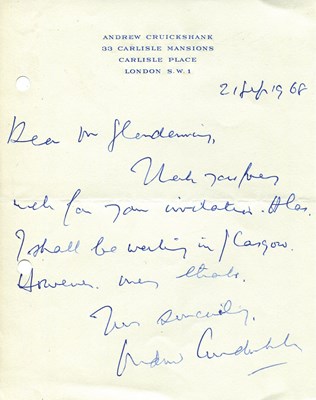 ANDREW CRUICKSHANK
33 CARLISLE MANSIONS
CARLISLE PLACE
LONDON S.W.1
21 Sep 1968
Dear Mr Glendenning,
Thank you very
much for your invitation. Alas.
I shall be working in Glasgow.
However. many thanks.
Yours sincerely,
Andrew Cruickshank